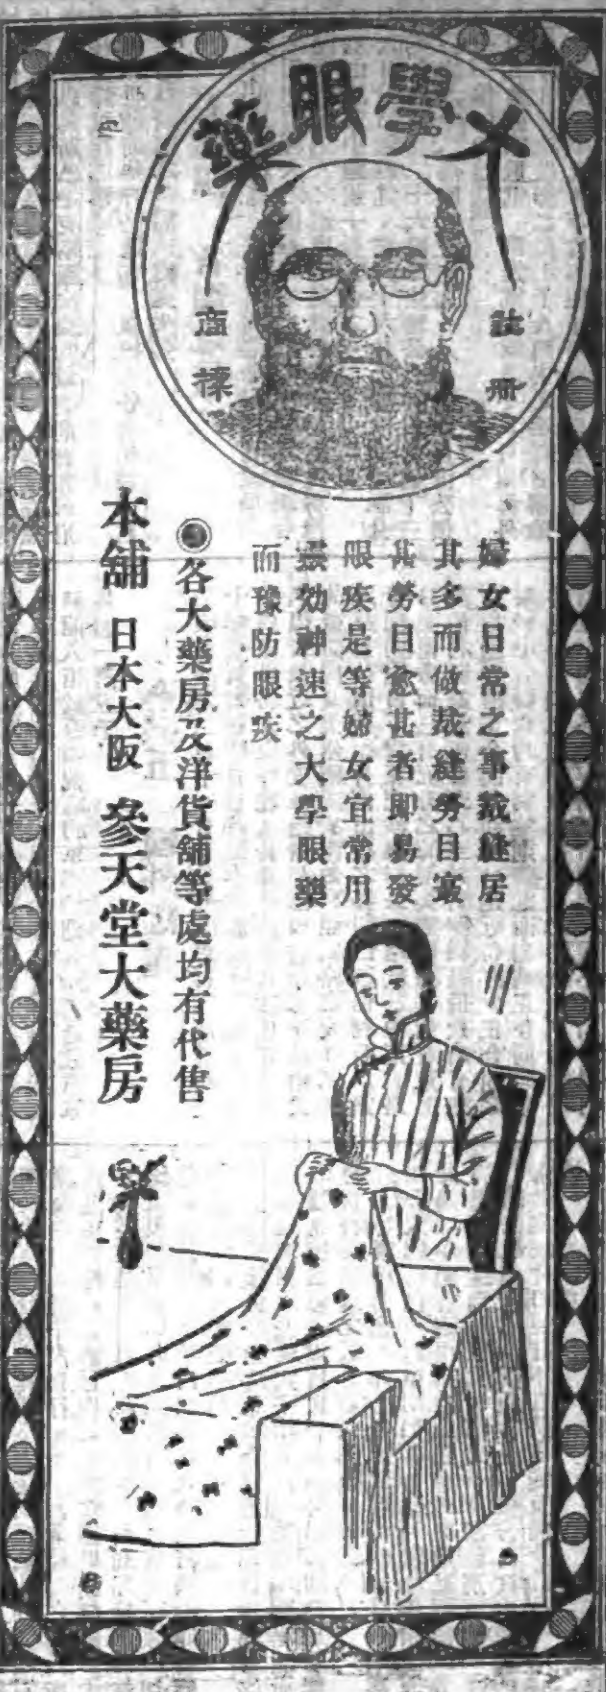 大學眼藥
註冊
商標
婦女日常之事裁縫居
其多而做裁縫勞目寂
甚勞目愈甚者即易發
眼疾是等婦女宜常用
靈効神速之大學眼藥
而豫防眼疾
各大藥房及洋貨舖等處均有代售
本舖 日本大阪 參天堂大藥房